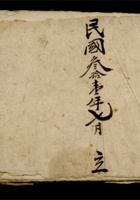 民國叁拾壹年七月 立